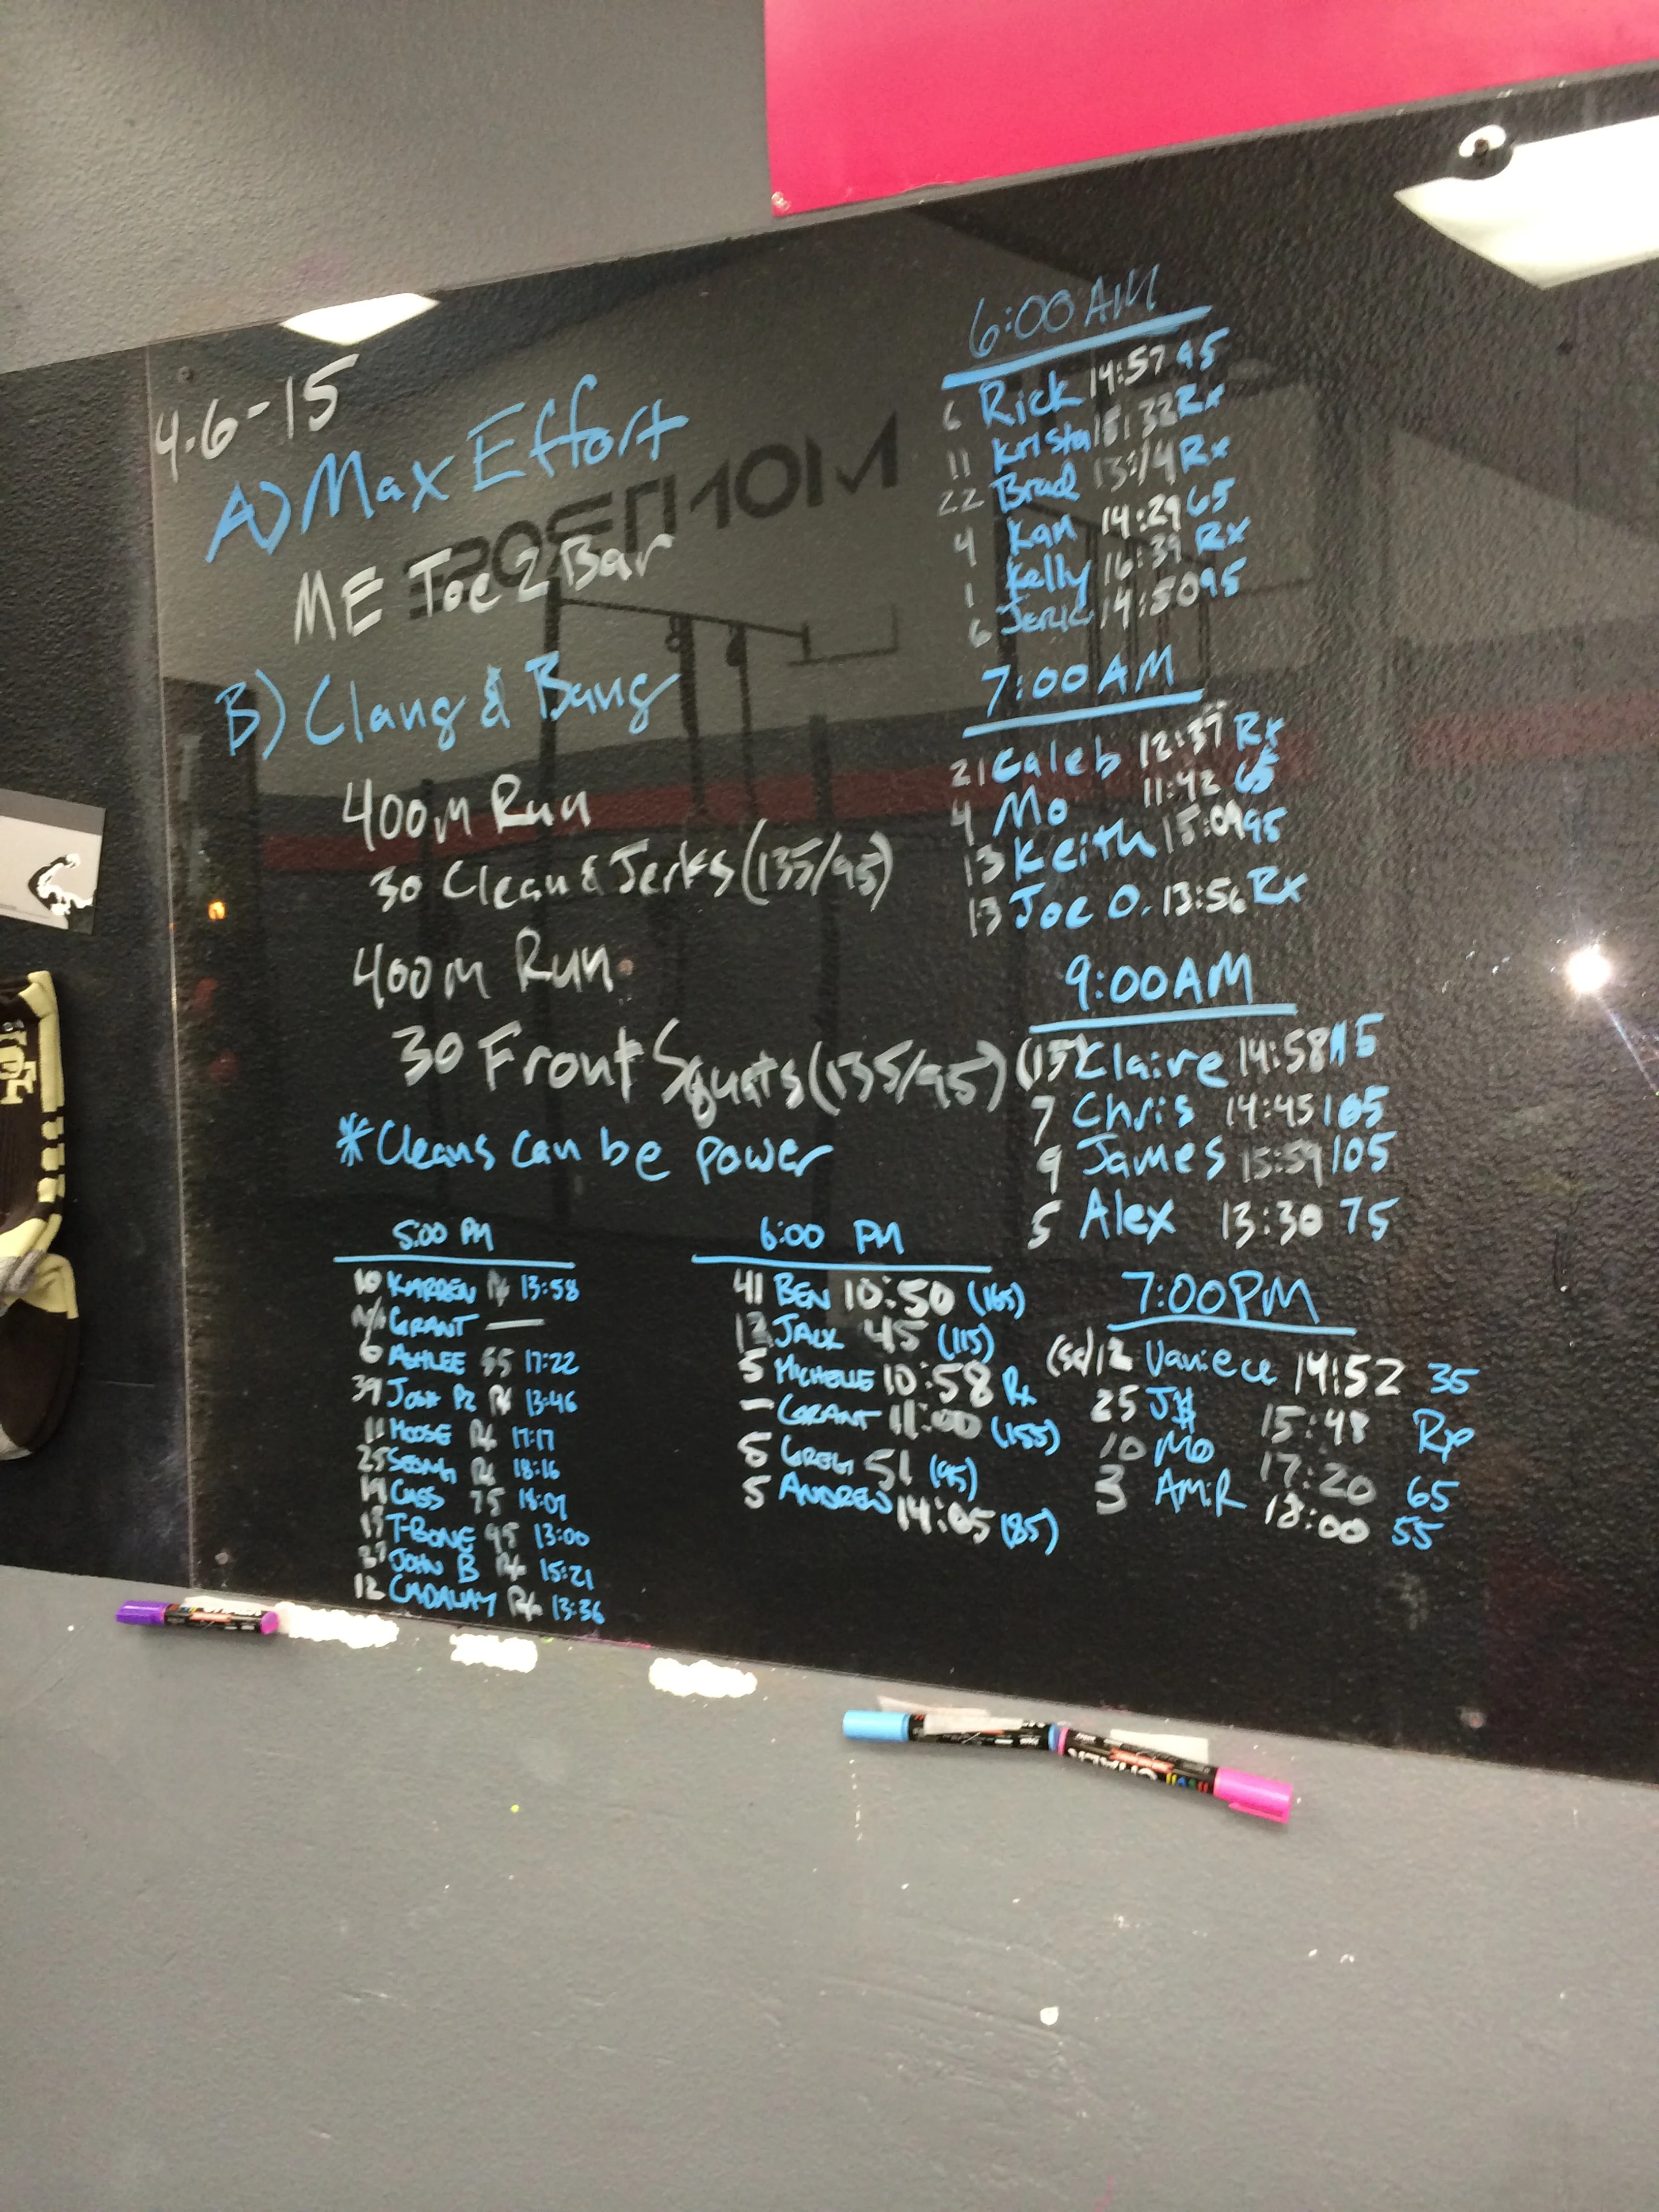 4-6-15
A) Max Effort
ME Toe 2 Bar
B) Clang & Bang
400m Run
30 Clean & Jerks (135/95)
400m Run
30 Front Squats (135/95)
*Cleans can be power
6:00 AM
6 Rick 14:57 95
11 Krista 15:32 Rx
22 Brad 13:14 Rx
4 Kan 14:29 65
1 Kelly 16:39 Rx
6 Jeric 14:50 95
7:00 AM
21 Caleb 12:37 Rx
4 Mo 11:42 65
13 Keith 15:09 95
13 Joe O. 13:56 Rx
9:00 AM
(15) Claire 14:58
7 Chris 14:45 105
9 James 15:59 105
5 Alex 13:30 75
5:00 PM
10 KARREN Rx 13:58
GRANT —
6 ASHLEE 55 17:22
39 JOSH PZ Rx 13:46
11 MOOSE Rx 17:17
25 Rx 18:16
19 CASS 75 18:07
13 T-BONE 95 13:00
JOHN B Rx 15:21
12 CADAWAY Rx 13:36
6:00 PM
41 BEN 10:50 (165)
JACK 45 (115)
5 MICHELLE 10:58 Rx
— GRANT 11:00 (155)
5 GREG 51 (95)
5 ANDREW 14:05 (85)
7:00 PM
(sc) 12 Vaniece 14:52 35
25 J$ 15:48 Rx
10 Mo 17:20 65
3 AMR 18:00 55